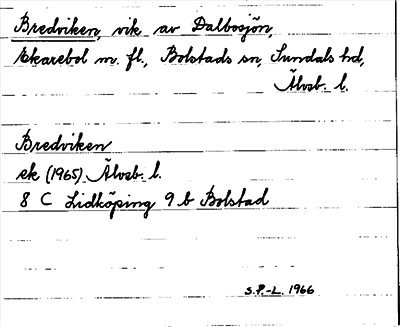 Bredviken, vik av Dalbosjön,
Ekarebol m. fl., Bolstads sn, Sundals hd,
Älvsb. l.
Bredviken
ek (1965) Älvsb. l.
8 C Lidköping 9 b Bolstad
S.P.-L. 1966